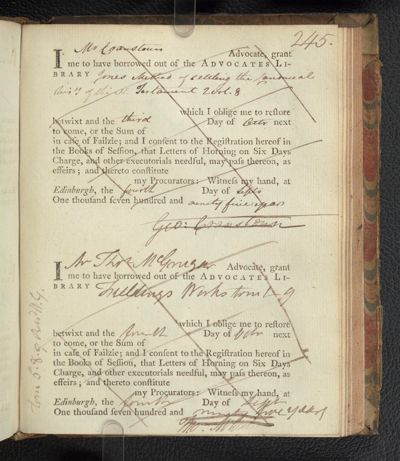 245.
I Mr Cranstoun Advocate, grant
me to have borrowed out of the ADVOCATES LI-
BRARY Jones Method of settling the Canonical
of the N. Testament 2 vol. 8
which I oblige me to restore
betwixt and the third Day of Octr next
to come, or the Sum of
in case of Failzie; and I consent to the Registration hereof in
the Books of Session, that Letters of Horning on Six Days
Charge, and other executorials needful, may pass thereon, as
effeirs; and thereto constitute
my Procurators: Witness my hand, at
Edinburgh, the fourth Day of Septr
One thousand seven hundred and ninety five years
Geo: Cranstoun
I Mr Thos McGrugar Advocate, grant
me to have borrowed out of the ADVOCATES LI-
BRARY Fieldings Works tom 1-9
which I oblige me to restore
betwixt and the Day of next
to come, or the Sum of
in case of Failzie; and I consent to the Registration hereof in
the Books of Session, that Letters of Horning on Six Days
Charge, and other executorials needful, may pass thereon, as
effeirs; and thereto constitute
my Procurators: Witness my hand, at
Edinburgh, the fourth Day of Sept
One thousand seven hundred and ninety five years